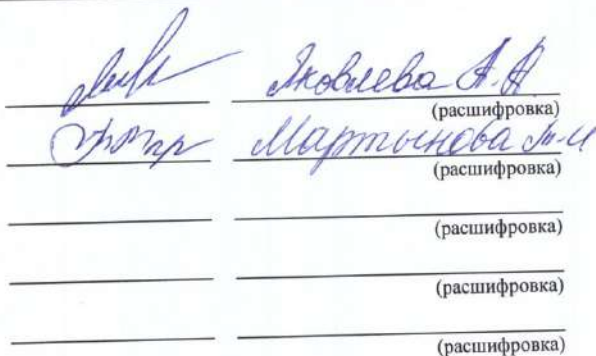 Яковлева А.А
(расшифровка)
Мартынова Т-И
(расшифровка)
(расшифровка)
(расшифровка)
(расшифровка)